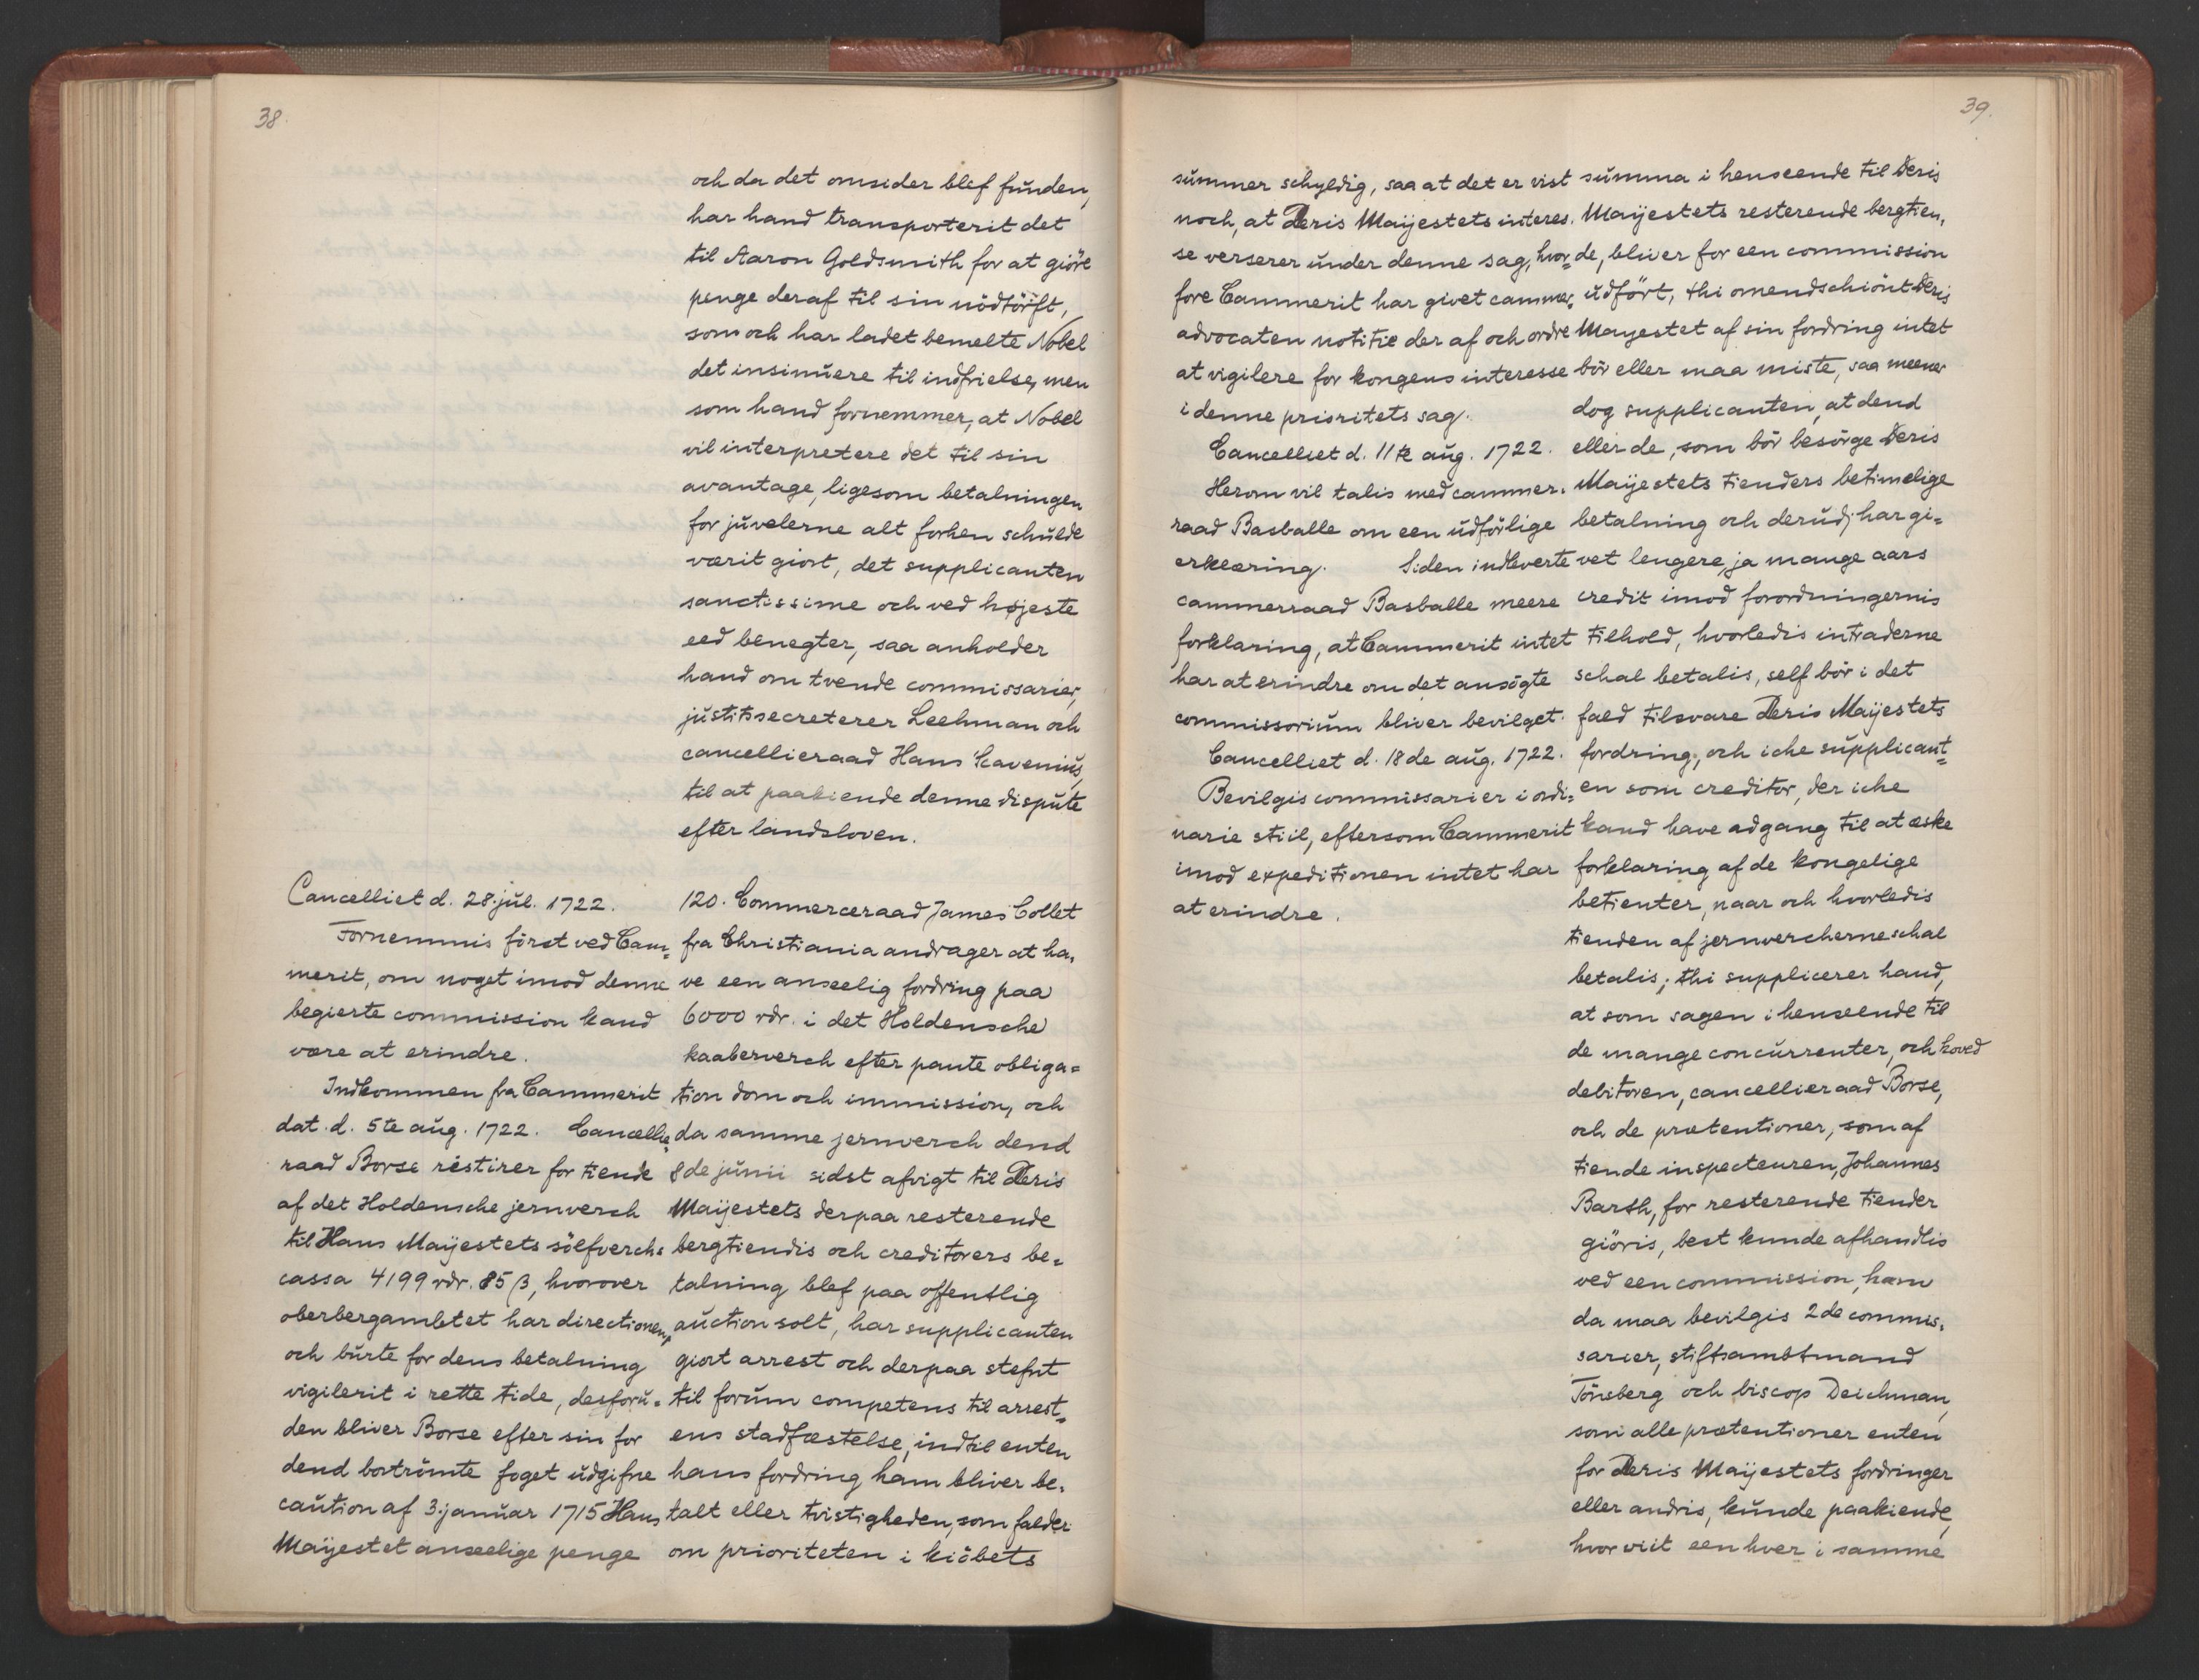 38.
och da det omsider blef funden,
har hand transporterit det
til Aaron Goldsmith for at giöre
penge deraf til sin nödtörft,
som och har ladet bemelte Nobel
det insinuere til indfrielse, men
som hand fornemmer, at Nobel
vil interpretere det til sin
avantage, ligesom betalningen
for juvelerne alt forhen schulde
værit giort, det supplicanten
sanctissime och ved højeste
eed benegter, saa anholder
hand om tvende commissarier,
justitssecreterer Leehman och
cancellieraad Hans Scavenius,
til at paakiende denne dispute
efter landsloven.
Cancelliet d. 28. jul. 1722.
Fornemmis först ved Cam=
merit, om noget imod denne
begierte commission kand
være at erindre.
Indkommen fra Cammerit
dat. d. 5te aug. 1722. Cancellie
raad Borse restirer for tiende
af det Holdensche jernverch
til Hans Maÿestets sölfverchs
cassa 4199 rdr. 85 β, hvorover
oberbergambtet har directionen,
och burte for dens betalning
vigilerit i rette tide, desforu=
den bliver Borse efter sin for
dend bortrömte foget udgifne
caution af 3. januar 1715 Hans
Maÿestet anseelige penge
120. Commerceraad James Collet
fra Christiania andrager at ha=
ve een anseelig fordring paa
6000 rdr. i det Holdensche
kaaberverch efter pante obliga=
tion dom och immission, och
da samme jernverch dend
8de junii sidst afvigt til Deris
Maÿestets derpaa resterende
bergtiendis och creditorers be=
talning blef paa offentlig
auction solt, har supplicanten
giort arrest och derpaa stefnt
til forum competens til arrest=
ens stadfæstelse, indtil enten
hans fordring ham bliver be=
talt eller tvistigheden, som falder
om prioriteten i kiöbets
39.
summer schyldig, saa at det er vist
noch, at Deris Maÿestets interes=
se verserer under denne sag, hvor=
fore Cammerit har givet cammer=
advocaten notitie der af och ordre
at vigilere for kongens interesse
i denne prioritets sag.
Cancelliet d. 11te aug. 1722.
Herom vil talis med cammer=
raad Basballe om een udförlige
erkleæring. Siden indleverte
cammerraad Basballe meere
forklaring, at Cammerit intet
har at erindre om det ansögte
commissorium bliver bevilget.
Cancelliet d. 18de aug. 1722.
Bevilgis commissarier i ordi=
narie stiil, eftersom Cammerit
imod expeditionen intet har
at erindre.
summa i henseende til Deris
Maÿestets resterende bergtien=
de, bliver for een commission
udfört, thi omendschiönt Deris
Mayestet af sin fordring intet
bör eller maa miste, saa meener
dog supplicanten, at dend
eller de, som bör besörge Deris
Maÿestets tienders betimelige
betalning och derudj har gi=
vet lengere, ja mange aars
credit imod forordningernis
tilhold, hvorledis intraderne
schal betalis, self bör i det
fald tilsvare Deris Maÿestets
fordring, och iche supplicant=
en som creditor, der iche
kand have adgang til at æske
forklaring af de kongelige
betienter, naar och hvorledis
tienden af jernvercherne schal
betalis; thi supplicerer hand,
at som sagen i henseende til
de mange concurrenter, och hoved
debitoren, cancellieraad Borse,
och de prætentioner, som af
tiende inspecteuren, Johannes
Barth, for resterende tiender
giöris, best kunde afhandlis
ved een commission, ham
da maa bevilgis 2de commis=
sarier, stiftsambtmand
Tönsberg och biscop Deichman,
som alle prætentioner enten
for Deris Maÿestets fordringer
eller andris, kunde paakiende,
hvor viit een hver i samme